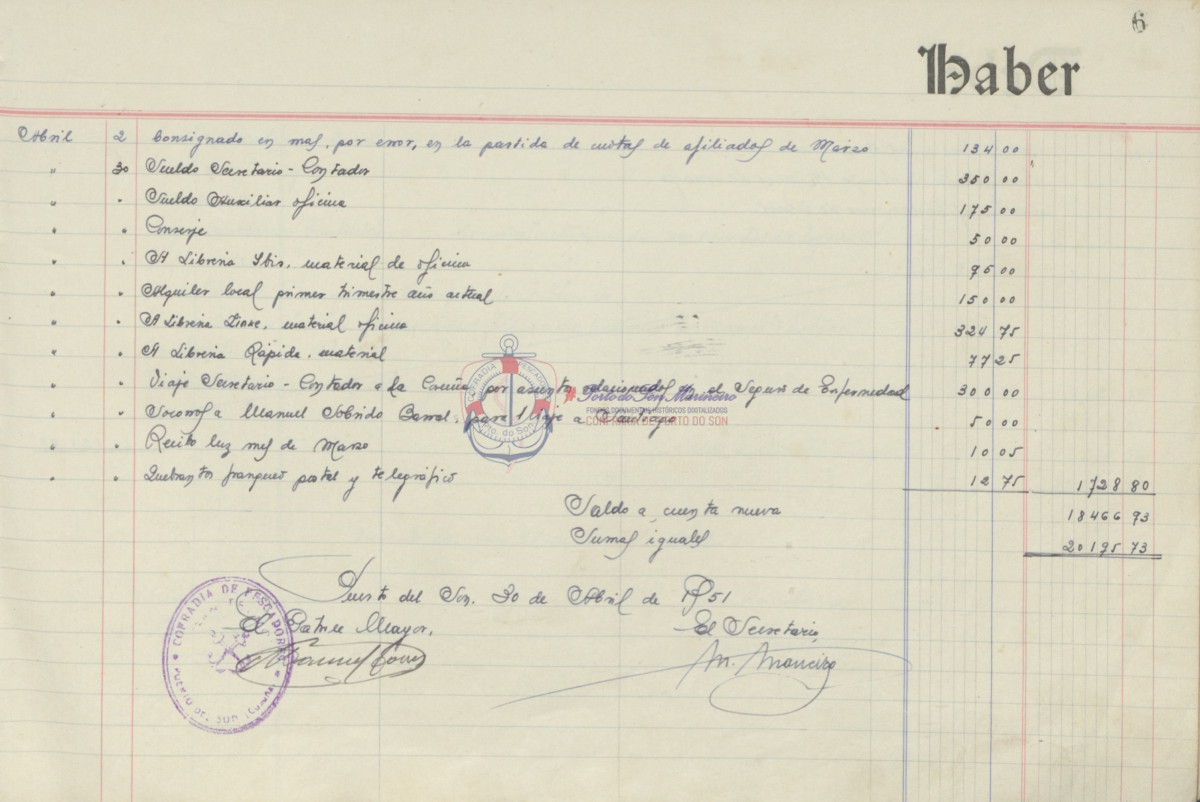 6
Haber
Abril 2 Consignado en mas, por error, en la partida de cuotas de afiliados de Marzo 134 00
" 30 Sueldo Secretario - Contador 350 00
" " Sueldo Auxiliar oficina 175 00
" " Conserje 50 00
" " A Libreria Ibis, material de oficina 95 00
" " Alquiler local primer trimestre año actual 150 00
" " A Libreria material oficina 324 75
" " A Libreria Rápida, material 77 25
" " Viaje Secretario - Contador a la Coruña por asuntos relacionados en el Seguro de Enfermedad 300 00
" " Socorro a Manuel Sobrido para viaje a Santiago 50 00
" " Recibo luz mes de Marzo 10 05
" " Quebrantos franqueo postal y telegráfico 12 75 1728 80
Saldo a cuenta nueva 18466 93
Sumas iguales 20195 73
Puerto del Son, 30 de Abril de 1951
El Patron Mayor, El Secretario,
Manuel
COFRADIA DE PESCADORES
PUERTO DEL SON (CORUÑA)
COFRADIA PESCADORES
Pto. do Son
# Porto do Son Mariñeiro
FONDOS DOCUMENTOS HISTÓRICOS DIXITALIZADOS
CONFRARÍA DE PORTO DO SON